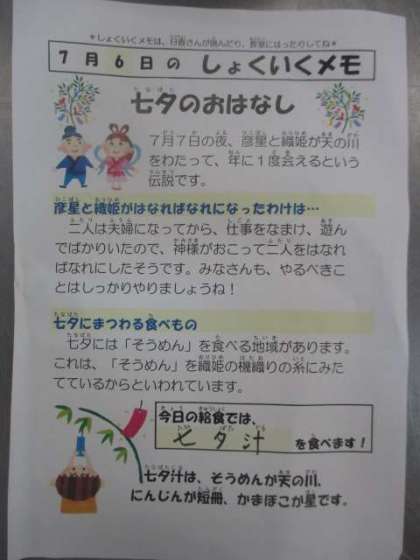 *しょくいくメモは、日直さんが読んだり、教室にはったりしてね*
7月6日の しょくいくメモ
七夕のおはなし
7月7日の夜、彦星と織姫が天の川
をわたって、年に1度会えるという
伝説です。
彦星と織姫がはなればなれになったわけは…
二人は夫婦になってから、仕事をなまけ、遊ん
でばかりいたので、神様がおこって二人をはなれ
ばなれにしたそうです。みなさんも、やるべきこ
とはしっかりやりましょうね！
七夕にまつわる食べもの
七夕には「そうめん」を食べる地域があります。
これは、「そうめん」を織姫の機織りの糸にみた
てているからといわれています。
今日の給食では、
七夕汁 を食べます！
七夕汁は、そうめんが天の川、
にんじんが短冊、かまぼこが星です。